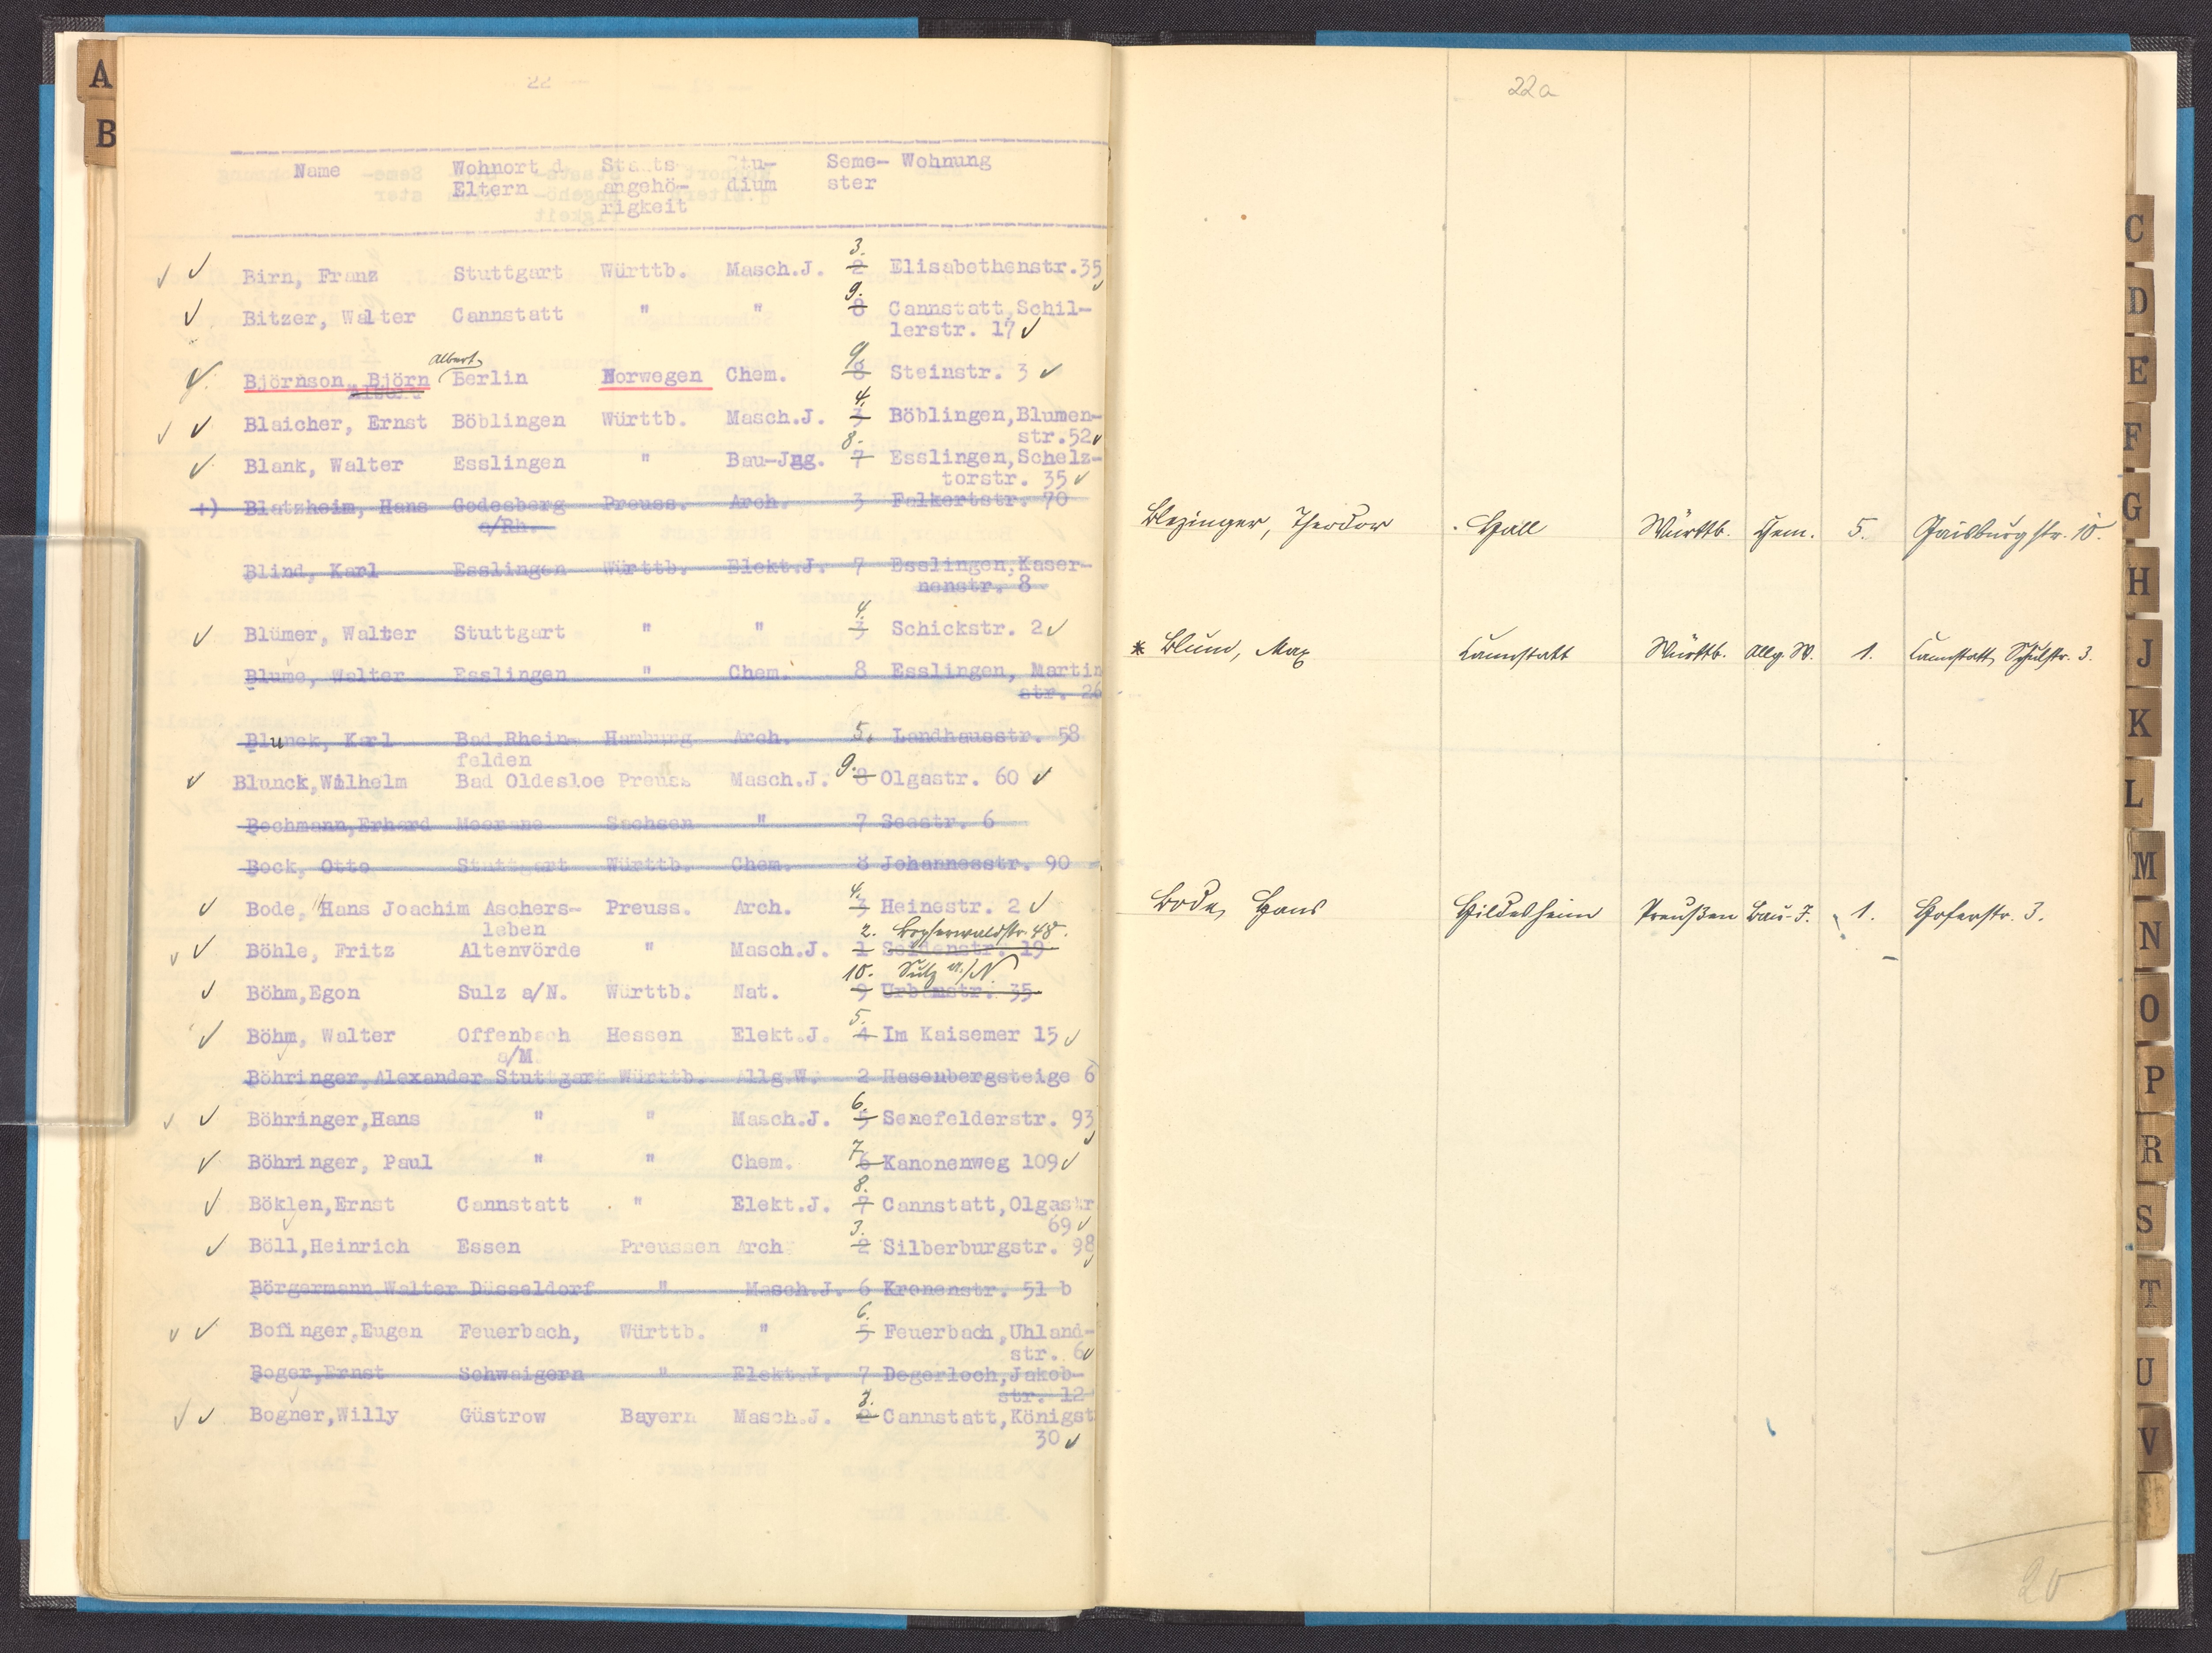 A
B
22
Name Wohnort d. Staats- Stu- Seme- Wohnung
Eltern angehö- dium ster
rigkeit
3.
Birn, Franz Stuttgart Württb. Masch.J. 2 Elisabethenstr.35
9.
Bitzer, Walter Cannstatt " " 8 Cannstatt,Schil-
lerstr. 17
Albert 9
Björnson, Björn Berlin Norwegen Chem. 8 Steinstr. 3
Albert
4.
Blaicher, Ernst Böblingen Württb. Masch.J. 3 Böblingen,Blumen-
str.52
8.
Blank, Walter Esslingen " Bau-Jng. 7 Esslingen,Schelz-
torstr. 35
+) Blatzheim, Hans Godesberg Preuss. Arch. 3 Falkertstr. 70
a/Rh.
Blind, Karl Esslingen Württb. Elekt.J. 7 Esslingen,Kaser-
nenstr. 8
4.
Blümer, Walter Stuttgart " " 3 Schickstr. 2
Blume, Walter Esslingen " Chem. 8 Esslingen, Martin
str. 26
Blunck, Karl Bad.Rhein- Hamburg Arch. 5. Landhausstr. 58
felden
9.
Blunck,Wilhelm Bad Oldesloe Preuss Masch.J. 8 Olgastr. 60
Bochmann,Erhard Meerane Sachsen " 7 Seestr. 6
Bock, Otto Stuttgart Württb. Chem. 8 Johannesstr. 90
4.
Bode, Hans Joachim Aschers- Preuss. Arch. 3 Heinestr. 2
leben
2. Bopserwaldstr. 48.
Böhle, Fritz Altenvörde " Masch.J. 1 Seidenstr. 19
10. Sulz a./N
Böhm,Egon Sulz a/N. Württb. Nat. 9 Urbanstr. 35
5.
Böhm, Walter Offenbach Hessen Elekt.J. 4 Im Kaisemer 15
a/M.
Böhringer,Alexander Stuttgart Württb. Allg.W. 2 Hasenbergsteige 6
6.
Böhringer,Hans " " Masch.J. 5 Senefelderstr. 93
7.
Böhringer, Paul " " Chem. 6 Kanonenweg 109
8.
Böklen,Ernst Cannstatt " Elekt.J. 7 Cannstatt,Olgastr
69
3.
Böll,Heinrich Essen Preussen Arch 2 Silberburgstr. 98
Börgermann Walter Düsseldorf " Masch.J. 6 Kronenstr. 51 b
6.
Bofinger,Eugen Feuerbach, Württb. " 5 Feuerbach,Uhland-
str. 6
Boger,Ernst Schwaigern " Elekt.J. 7 Degerloch,Jakob-
str. 12
3.
Bogner,Willy Güstrow Bayern Masch.J. 2 Cannstatt,Königst
30
22a
Blezinger, Theodor Hall Württb. Chem. 5. Gaisburgstr. 10.
* Blum, Max Cannstatt Württb. Allg. W. 1. Cannstatt, Schulstr. 3.
Bode, Hans Hildesheim Preußen Bau-J. 1. Hoferstr. 3.
20
C
D
E
F
G
H
J
K
L
M
N
O
P
R
S
T
U
V